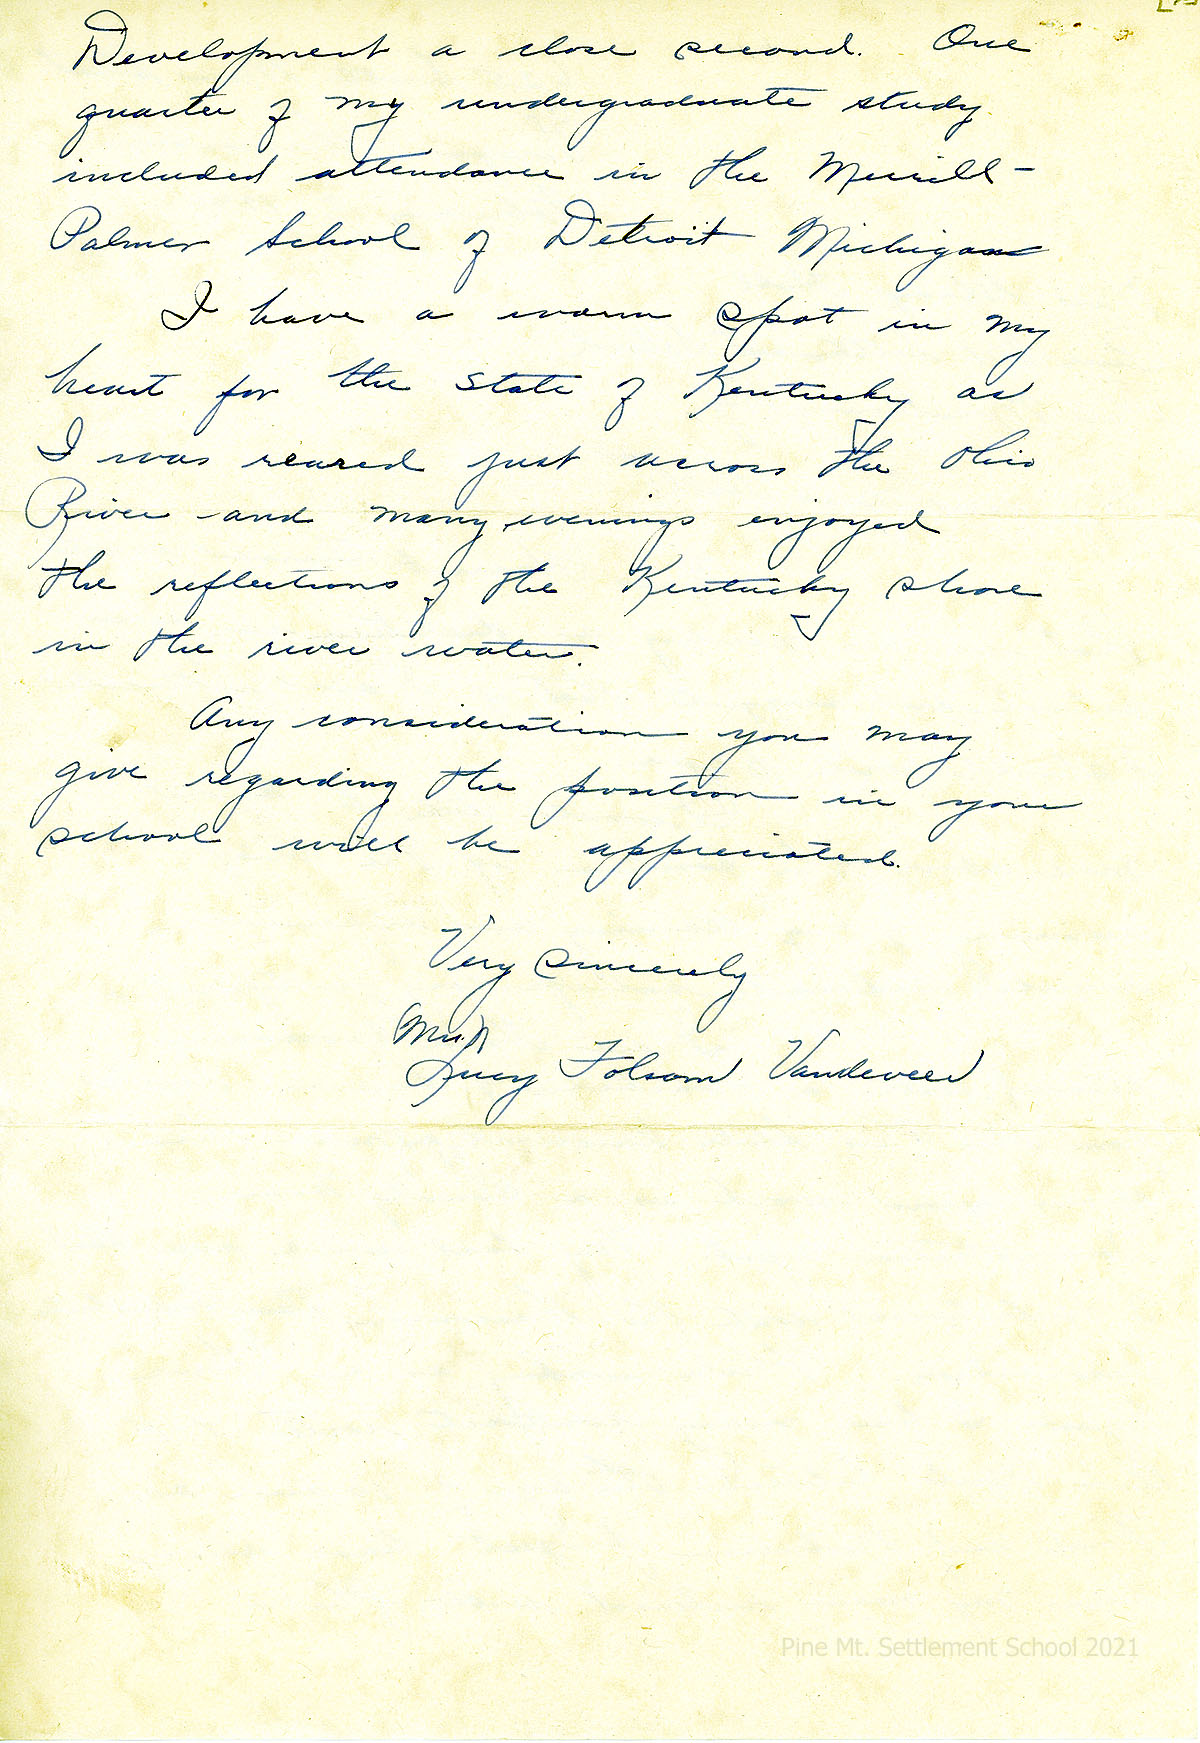 Development a close second. One
quarter of my undergraduate study
included attendance in the Merrill-
Palmer School of Detroit Michigan
I have a warm spot in my
heart for the state of Kentucky as
I was reared just across the Ohio
River and many evenings enjoyed
the reflections of the Kentucky shore
in the river water.
Any consideration you may
give regarding the position in your
school will be appreciated.
Very sincerely
(Mrs.)
Lucy Folsom Vandeveer
Pine Mt. Settlement School 2021